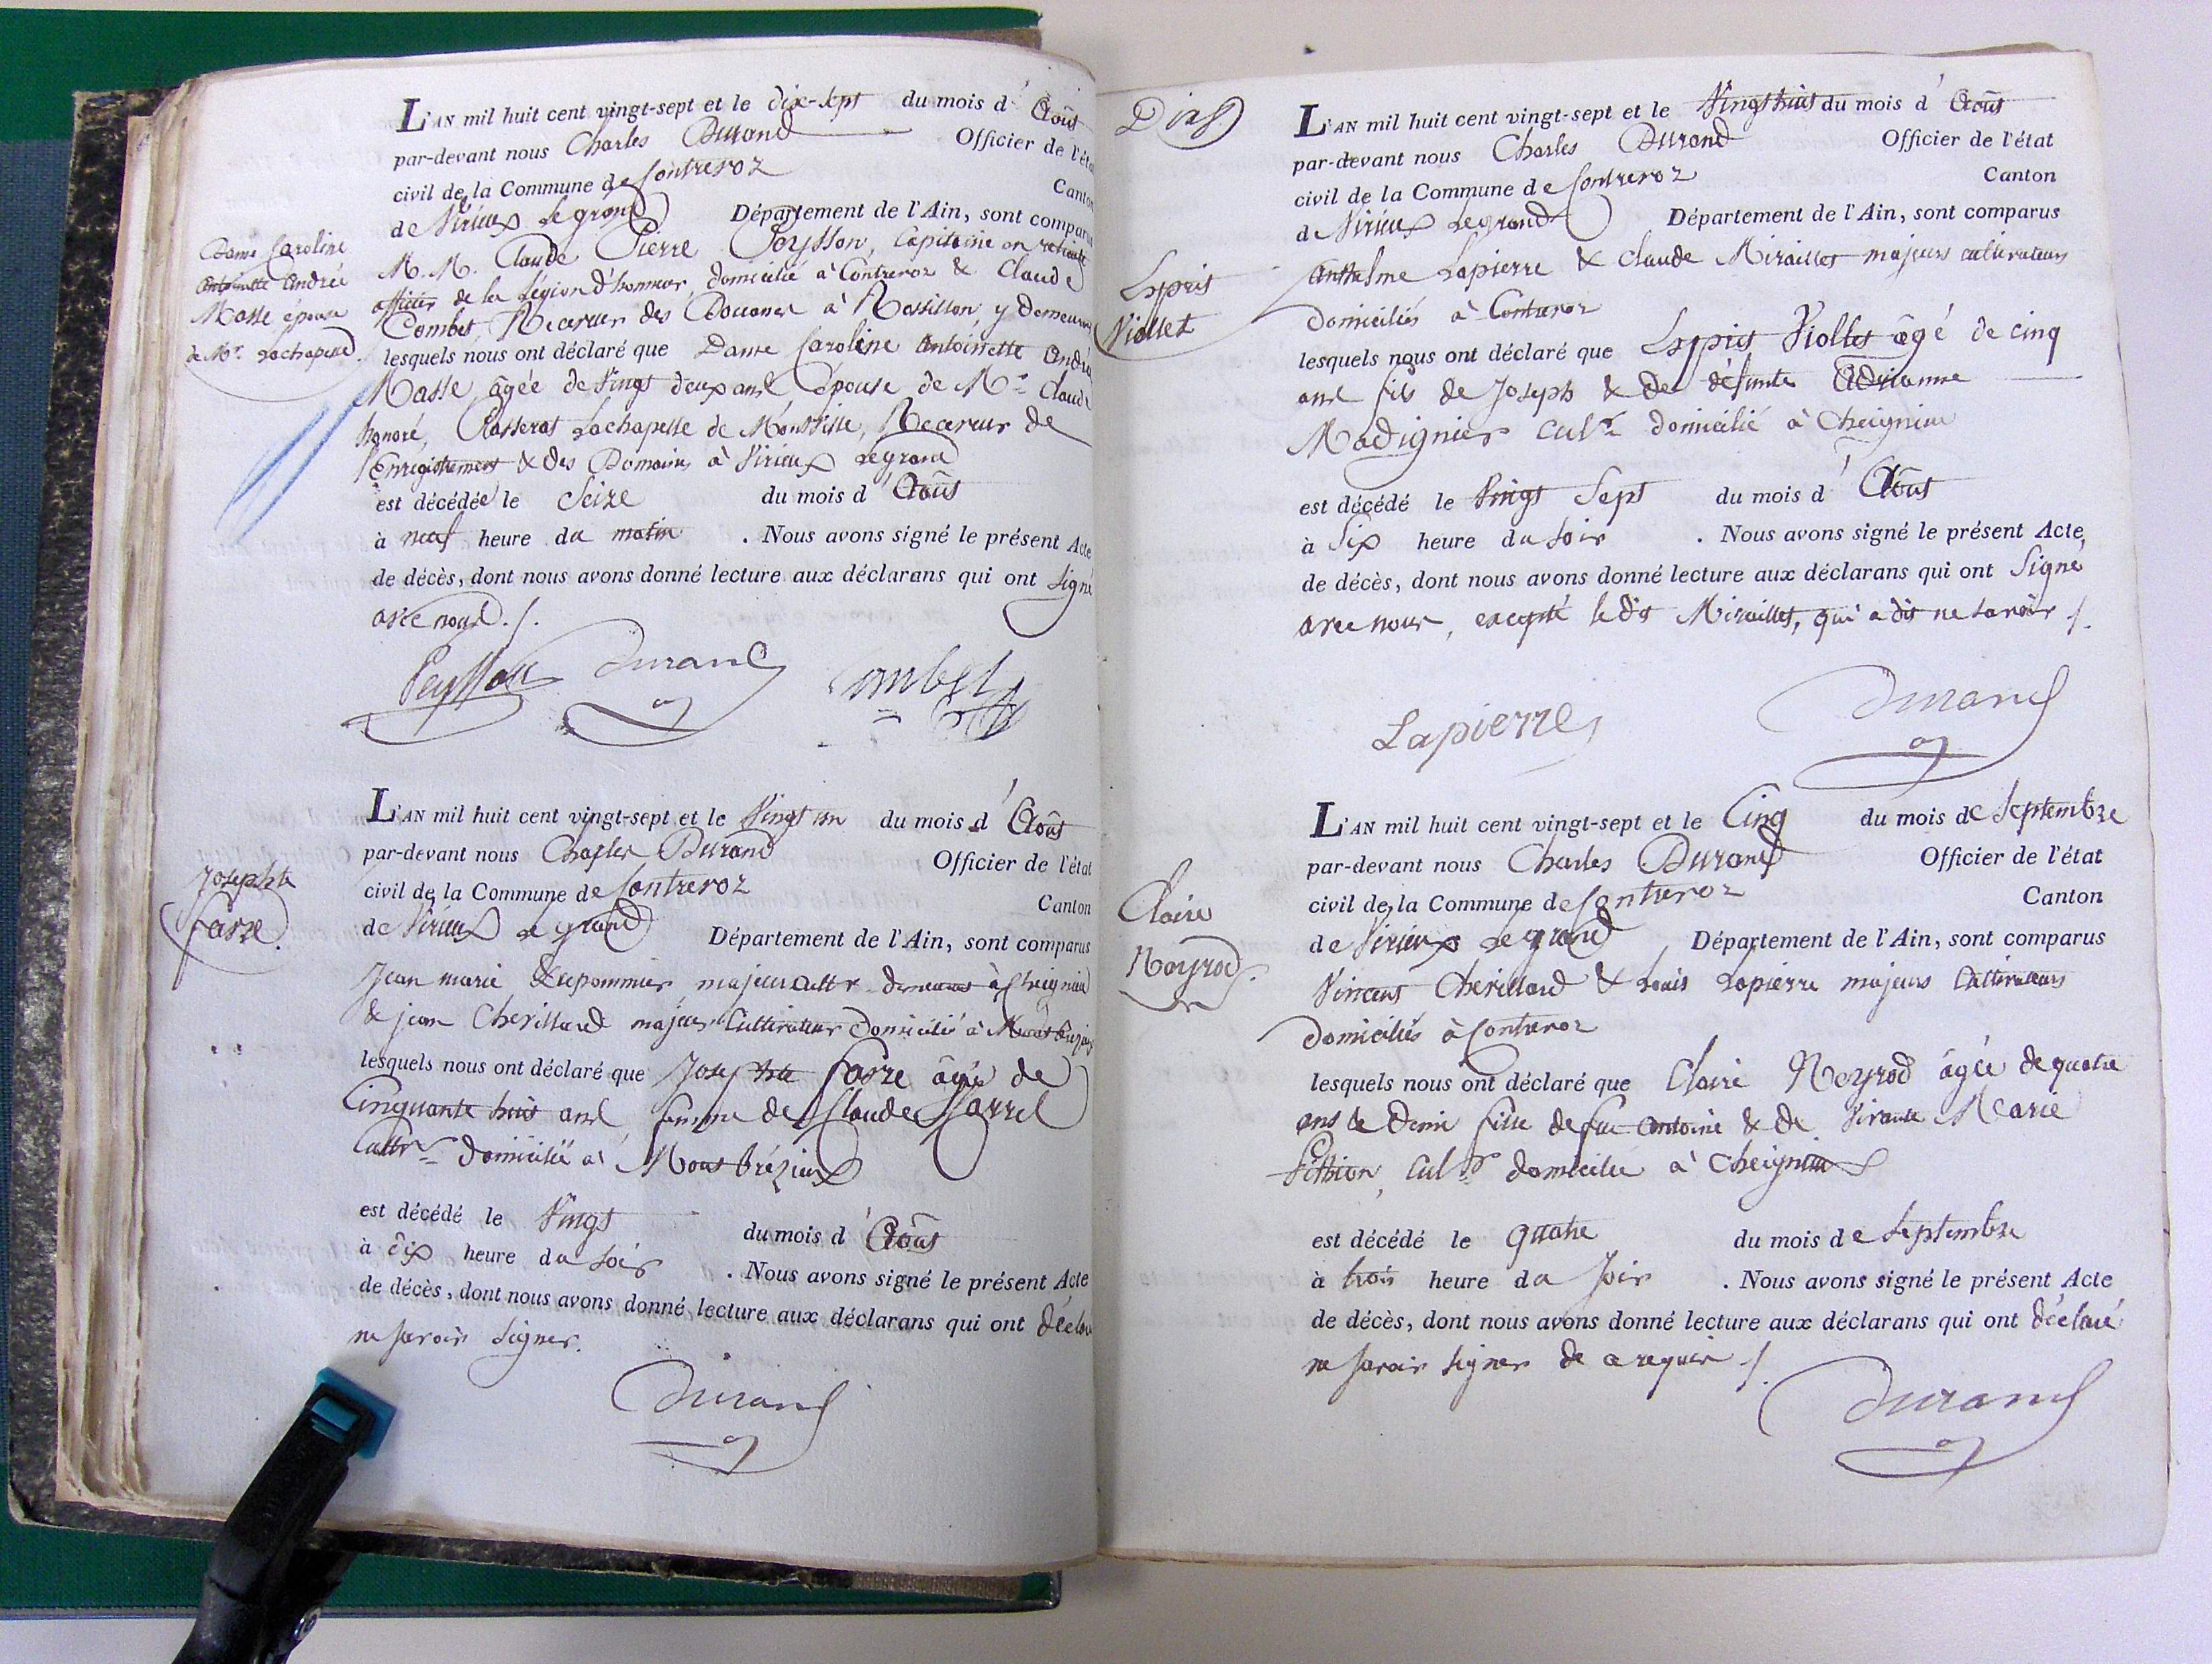 L'AN mil huit cent vingt-sept et le dix-sept du mois d'Août
par-devant nous Charles Durand Officier de l'état
civil de la Commune de Contrevoz Canton
de Virieux Legrand Département de l'Ain, sont comparus
M. M. Claude Pierre Peysson, Capitaine en retraite
officier de la Légion d'honneur, domicilié à Contrevoz & Claude
Combet, Receveur des Douanes à Rossillon y demeurant
lesquels nous ont déclaré que Dame Caroline Antoinette André
Masse, âgée de Vingt deux ans épouse de Mr. Claude
honoré, Passerat Lachapelle de Receveur de
l'Enregistrement & des Domaines à Virieux Legrand
est décédée le Seize du mois d'Août
à neuf heure du matin . Nous avons signé le présent Acte
de décès, dont nous avons donné lecture aux déclarans qui ont Signé
avec nous ./.
Peysson Durand Combet
Dame Caroline
Antoinette André
Masse épouse
de Mr. Lachapelle.
L'AN mil huit cent vingt-sept et le Vingt un du mois d'Août
par-devant nous Charles Durand Officier de l'état
civil de la Commune de Contrevoz Canton
de Virieux Le grand Département de l'Ain, sont comparus
Jean marie majeur cultr. demeurant à Cheignieu
& jean Cherillard majeur Cultivateur domicilié à
lesquels nous ont déclaré que Josephte Farre âgée de
Cinquante huit ans femme de Claude
Cultr. domicilié à Montbrézieux
est décédé le Vingt du mois d'Août
à dix heure du soir . Nous avons signé le présent Acte
de décès, dont nous avons donné lecture aux déclarans qui ont déclaré
ne savoir signer.
Durand
Josephte
Farre.
Dias
L'AN mil huit cent vingt-sept et le Vingt huit du mois d'Août
par-devant nous Charles Durand Officier de l'état
civil de la Commune de Contrevoz Canton
de Virieux Legrand Département de l'Ain, sont comparus
Anthelme Lapierre & Claude Miraillet majeurs cultivateurs
domiciliés à Contrevoz
lesquels nous ont déclaré que Esprit Viollet âgé de cinq
ans fils de Joseph & de défunte Adrianne
Madignier Culr. domicilié à Cheignieu
est décédé le Vingt Sept du mois d'Août
à Six heure du soir . Nous avons signé le présent Acte
de décès, dont nous avons donné lecture aux déclarans qui ont Signé
avec nous, excepté ledit Miraillet, qui a dit ne savoir ./.
Lapierre Durand
Esprit
Viollet
L'AN mil huit cent vingt-sept et le Cinq du mois de Septembre
par-devant nous Charles Durand Officier de l'état
civil de la Commune de Contrevoz Canton
de Virieux Le grand Département de l'Ain, sont comparus
Vincent Cherillard & Louis Lapierre majeurs Cultivateurs
domiciliés à Contrevoz
lesquels nous ont déclaré que Claire Reyrod âgée de quatre
ans & demi fille de feu Antoine & de Vivante Marie
Culr. domiciliée à Cheignieu
est décédé le quatre du mois de Septembre
à trois heure du Soir . Nous avons signé le présent Acte
de décès, dont nous avons donné lecture aux déclarans qui ont déclaré
ne savoir signer de ce requis ./.
Durand
Claire
Reyrod.